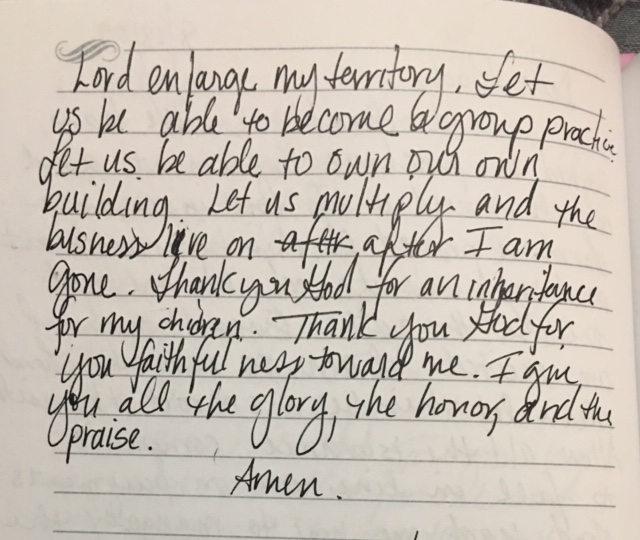 Lord enlarge my territory. Let
us be able to become a group practice
Let us be able to own our own
building. Let us multiply and the
busness live on after after I am
gone. Thank you God for an inheritance
for my chidren. Thank you God for
you faithful ness toward me. I give
you all the glory, the honor, and the
praise.
Amen.